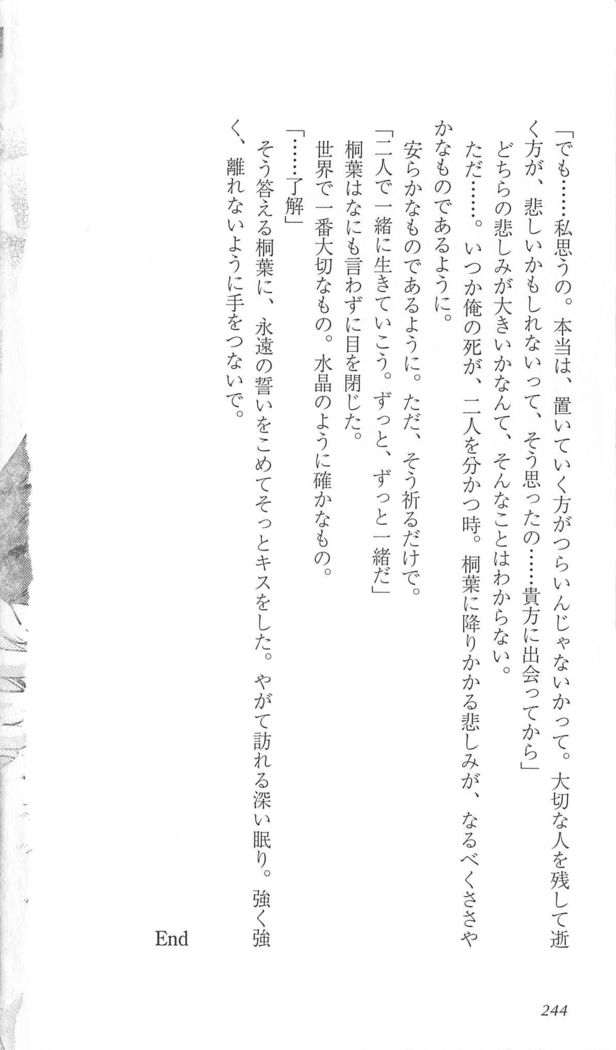 「でも……私思うの。本当は、置いていく方がつらいんじゃないかって。大切な人を残して逝
く方が、悲しいかもしれないって、そう思ったの……貴方に出会ってから」
どちらの悲しみが大きいかなんて、そんなことはわからない。
ただ……。いつか俺の死が、二人を分かつ時。桐葉に降りかかる悲しみが、なるべくささや
かなものであるように。
安らかなものであるように。ただ、そう祈るだけで。
「二人で一緒に生きていこう。ずっと、ずっと一緒だ」
桐葉はなにも言わずに目を閉じた。
世界で一番大切なもの。水晶のように確かなもの。
「……了解」
そう答える桐葉に、永遠の誓いをこめてそっとキスをした。やがて訪れる深い眠り。強く強
く、離れないように手をつないで。
End
244